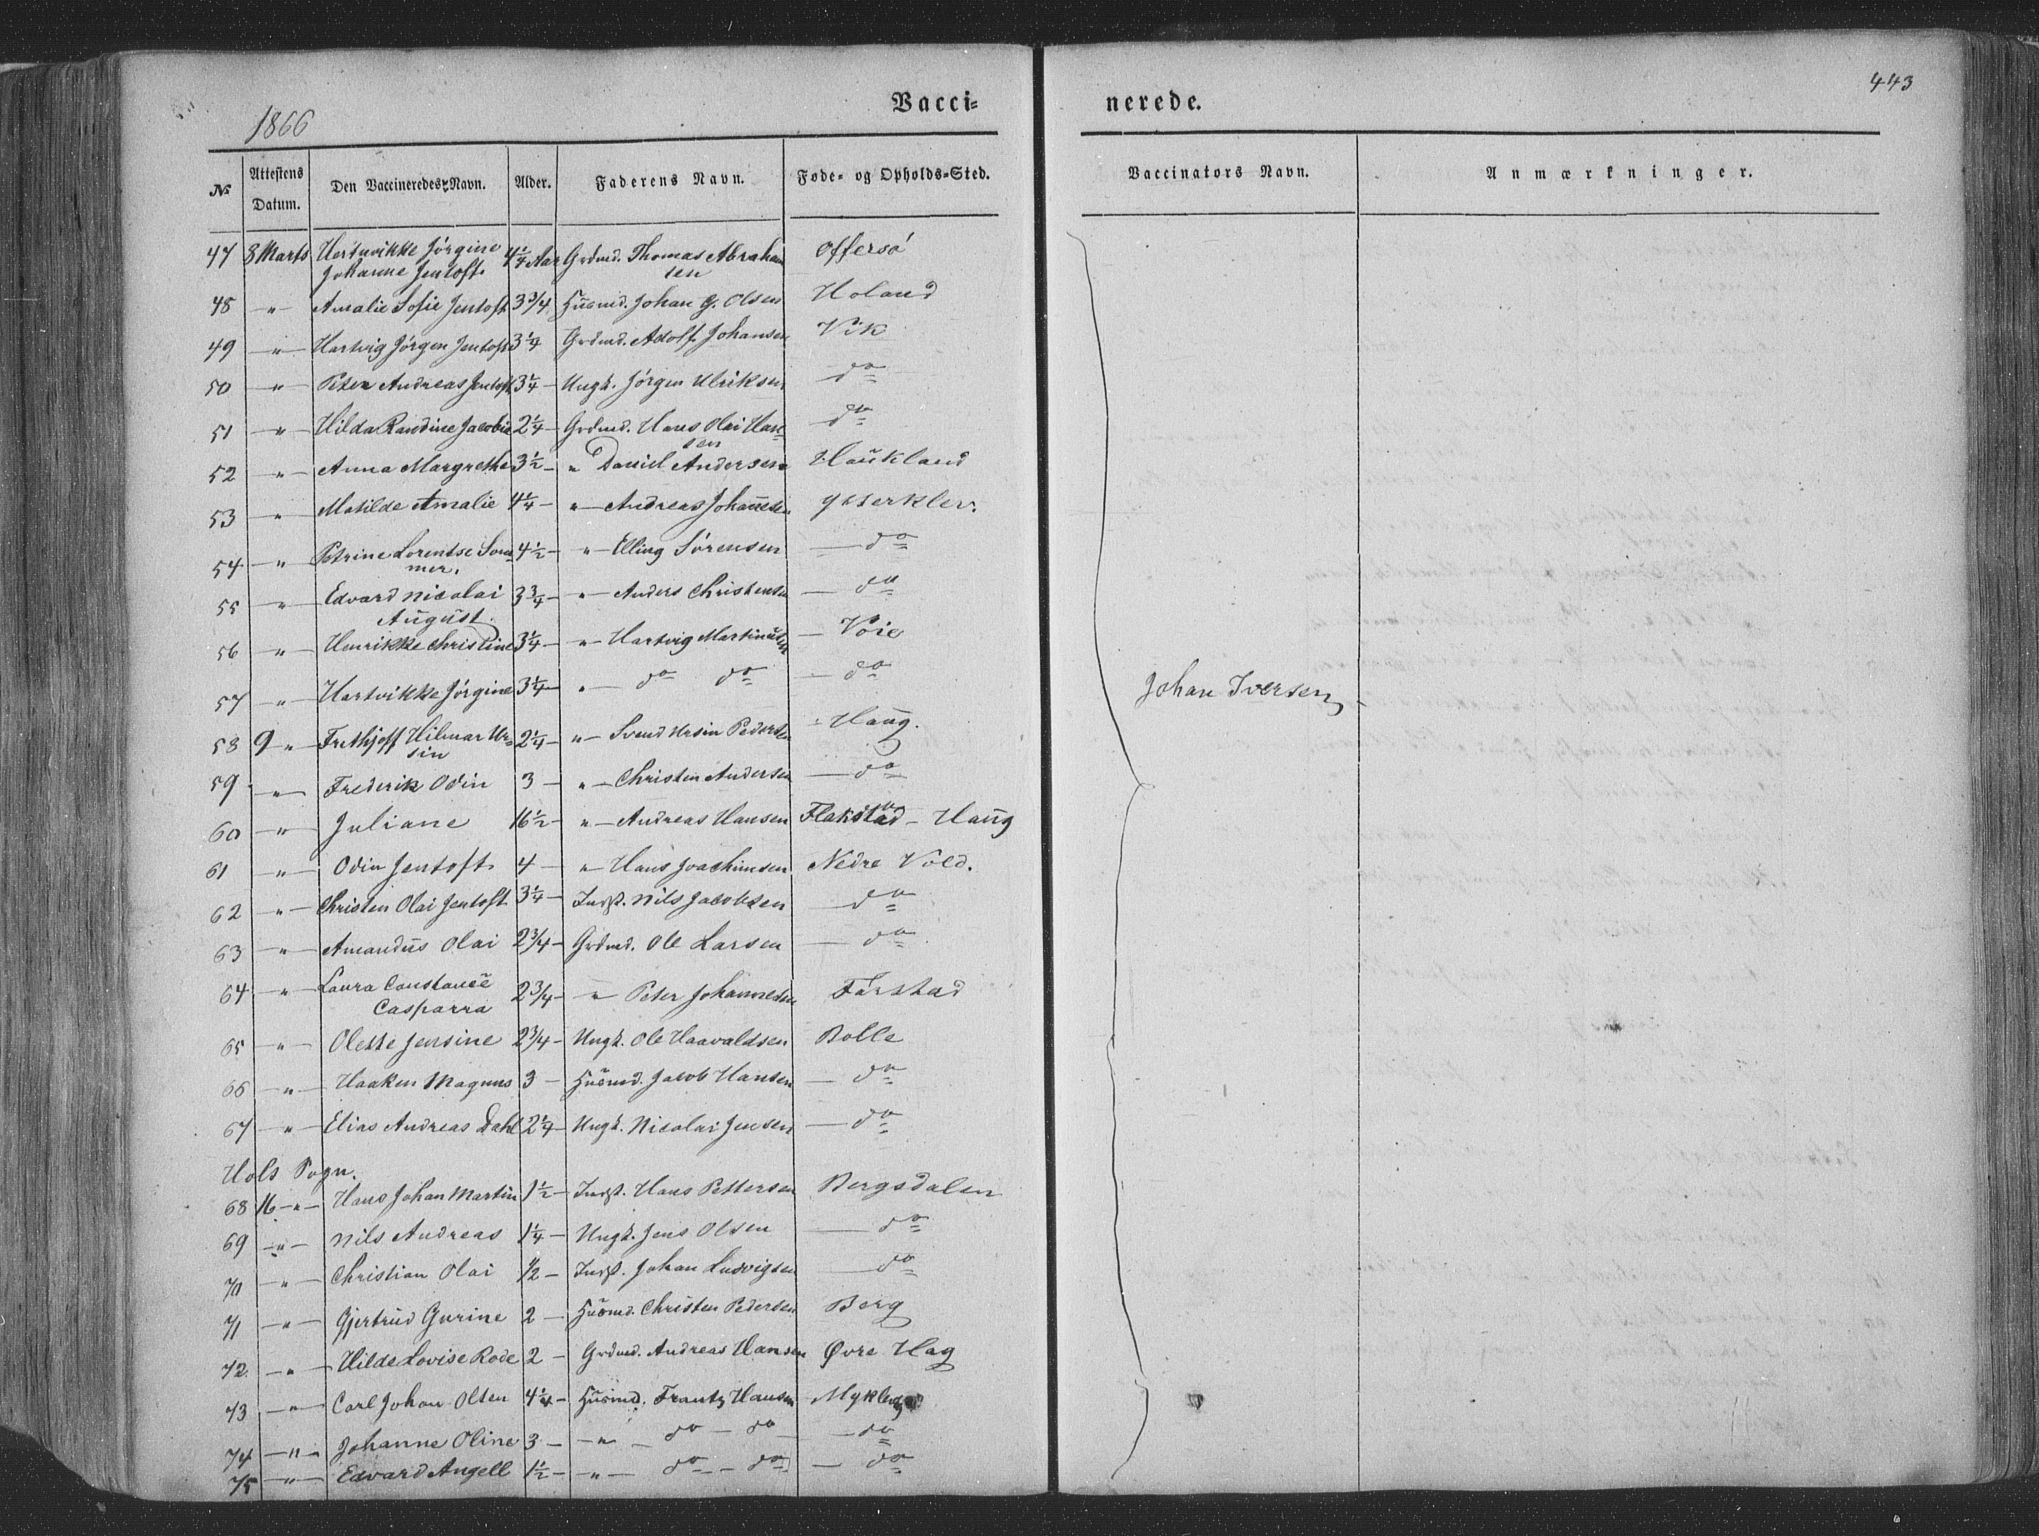 443
1866
Vacci= nerede.
№ Attestens Datum. Den Vaccineredes Navn. Alder. Faderens Navn. Føde- og Opholds-Sted. Vaccinators Navn. Anmærkninger.
47 8 Marts Hartvikke Jørgine 4 1/4 Aar Grdmd. Thomas Abraham Offersö
Johanne Jentoft sen
48 " Amalie Sofie Jentoft 3 3/4 Huusmd. Johan G. Olsen Holand
49 " Hartvig Jörgen Jentoft 3 1/4 Grdmd. Adolf Johansen Vik
50 " Peter Andreas Jentoft 3 1/4 — Ungk. Jörgen Ulriksen do
51 " Hilda Randine Jacobie 2 1/4 — Grdmd. Hans Olai Han= do
sen
52 " Anna Margrethe 3 1/2 — " Daniel Andersen Haukland
53 " Matilde Amalie 4 1/4 — " — Andreas Johannesen Ytterklev.
54 " Petrine Lorentse Som 4 1/2 — " — Elling Sörensen — do
mer.
55 " Edvard Nicolai 3 3/4 — " — Anders Christensen — do
August.
56 " Henrikke Christine 3 1/4 — " — Hartvig Martinussen — Voie
57 " Hartvikke Jørgine 3 1/4 — " — do do — do
58 9 " Frethjoff Hilmar Ur= 2 1/4 — " — Svend Ursin Pedersen Haug.
sin
59 " Frederik Odin 3 — " — Christen Andersen — do
60 " Juliane 16 1/2 — " — Andreas Hansen Flakstad — Haug
61 " Odin Jentoft 4 — " Hans Joachimsen Nedre Vold.
62 " Christen Olai Jentoft 3 1/4 — Indst. Nils Jacobsen — do
63 " Amandus Olai 2 3/4 — Grdmd. Ole Larsen — do
64 " Laura Constance 2 3/4 — " — Peter Johannesen Farstad
Casparra
65 " Olette Jensine 2 3/4 — Ungk. Ole Haavaldsen Bolle
66 " Haaken Magnus 3 — Huusmd. Jacob Hansen — do
67 " Elias Andreas Dahl 2 1/4 — Ungk. Nicolai Jensen — do
Hols Sogn.
68 16 " Hans Johan Martin 1 1/2 — Indst. Hans Pettersen Bergsdalen
69 " Nils Andreas 1 1/4 — Ungk. Jens Olsen — do
70 " Christian Olai 1/2 — Indst. Johan Ludvigsen — do
71 " Gjertrud Gurine 2 — Huusmd. Christen Pedersen Berg
72 " Hilda Lovise Rode 2 — Grdmd. Andreas Hansen Øvre Hag
73 " Carl Johan Olten 4 1/4 — Huusmd. Frantz Hansen Mykleb
74 " Johanne Oline 3 — " — do — do — do
75 " Edvard Angell 1 1/2 — " — do — do — do
Johan Iversen